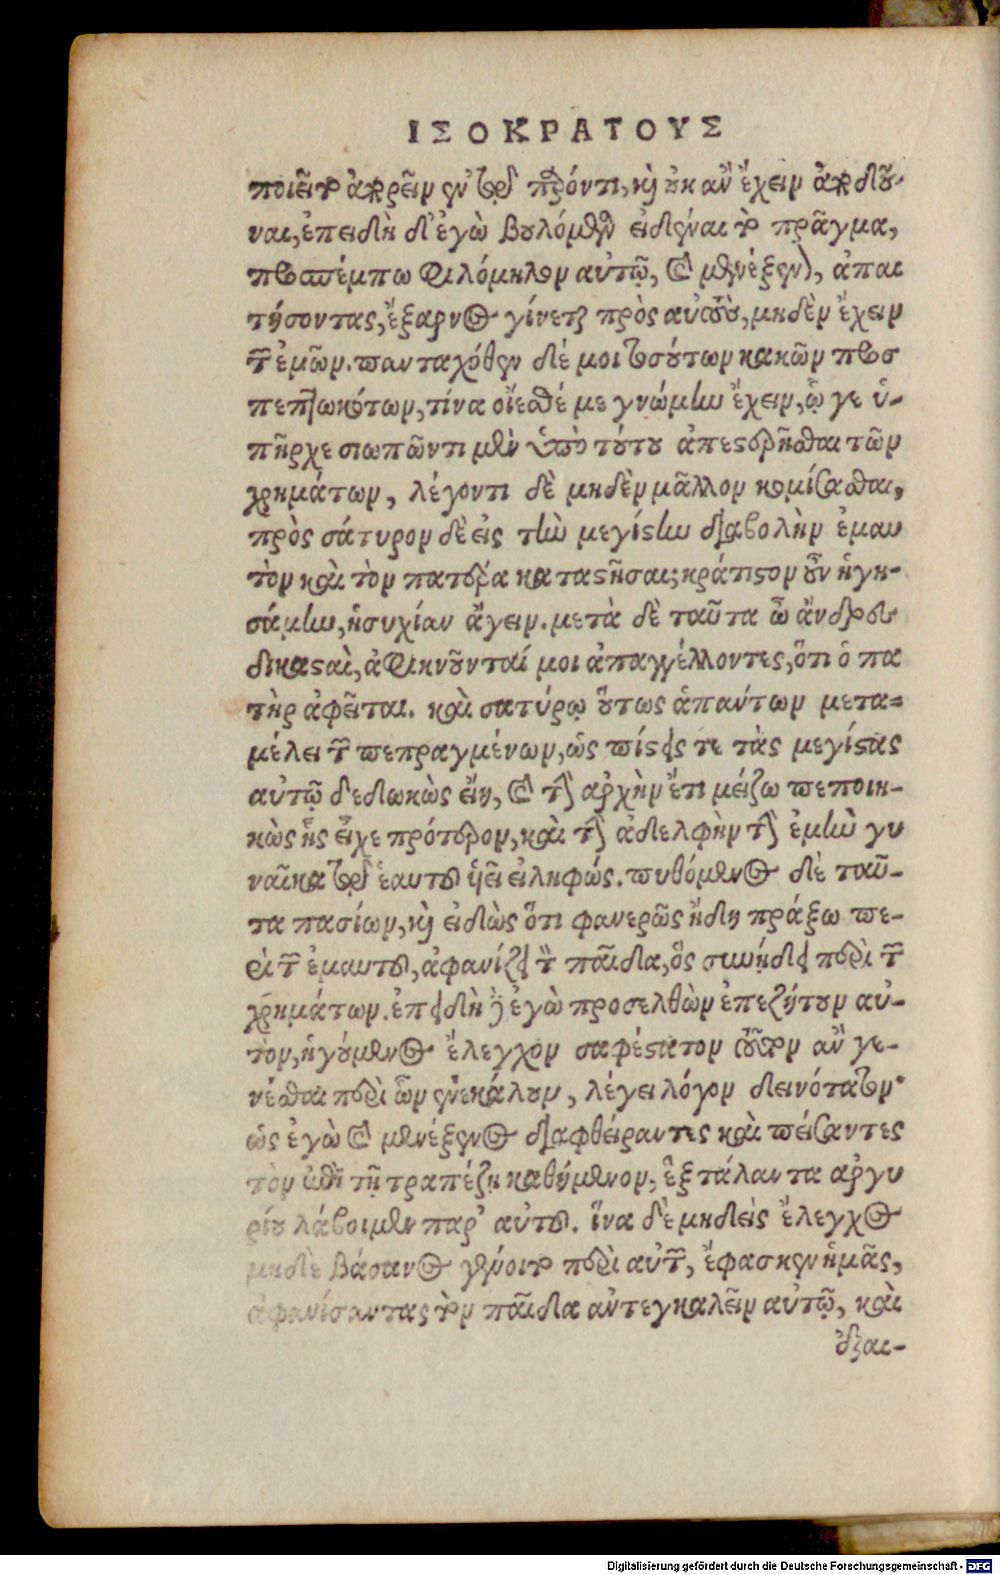 ΙΣΟΚΡΑΤΟΥΣ
ποιεῖτο ἀπορεῖν ἐν τῷ παρόντι, καὶ οὐκ ἂν ἔχειν ἀποδοῦ-
ναι, ἐπειδὴ δ' ἐγὼ βουλόμενος εἰδέναι τὸ πρᾶγμα,
προσπέμπω Φιλόμηλον αὐτῷ, καὶ μενέξενον, ἀπαι
τήσοντας, ἔξαρνος γίνεται πρὸς αὐτοὺς, μηδὲν ἔχειν
τῶν ἐμῶν. πανταχόθεν δέ μοι τοσούτων κακῶν προσ
πεπτωκότων, τίνα οἴεσθέ με γνώμην ἔχειν, ᾧ γε ὑ-
πῆρχε σιωπῶντι μὲν ὑπὸ τούτου ἀπεστερῆσθαι τῶν
χρημάτων, λέγοντι δὲ μηδὲν μᾶλλον κομίσασθαι,
πρὸς σάτυρον δὲ εἰς τὴν μεγίστην διαβολὴν ἐμαυ
τὸν καὶ τὸν πατέρα καταστῆσαι; κράτιστον οὖν ἡγη-
σάμην, ἡσυχίαν ἄγειν. μετὰ δὲ ταῦτα ὦ ἄνδρες
δικασταὶ, ἀφικνοῦνταί μοι ἀπαγγέλλοντες, ὅτι ὁ πα
τὴρ ἀφεῖται. καὶ σατύρῳ οὕτως ἁπάντων μετα-
μέλει τῶν πεπραγμένων, ὡς πίστεις τε τὰς μεγίστας
αὐτῷ δεδωκὼς εἴη, καὶ τὴν ἀρχὴν ἔτι μείζω πεποιη-
κὼς ἧς εἶχε πρότερον, καὶ τὴν ἀδελφὴν τὴν ἐμὴν γυ
ναῖκα τῷ ἑαυτοῦ υἱεῖ εἰληφώς. πυθόμενος δὲ ταῦ-
τα πασίων, καὶ εἰδὼς ὅτι φανερῶς ἤδη πράξω πε-
ρὶ τῶν ἐμαυτοῦ, ἀφανίζει τὸν παῖδα, ὃς συνῄδει περὶ τῶν
χρημάτων. ἐπειδὴ δ' ἐγὼ προσελθὼν ἐπεζήτουν αὐ-
τον, ἡγούμενος ἔλεγχον σαφέστατον τοῦτον ἂν γε-
νέσθαι περὶ ὧν ἐνεκάλουν, λέγει λόγον δεινότατον·
ὡς ἐγὼ καὶ μενέξενος διαφθείραντες καὶ πείσαντες
τὸν ἐπὶ τῇ τραπέζῃ καθήμενον, ἓξ τάλαντα ἀργυ
ρίου λάβοιμεν παρ' αὐτοῦ. ἵνα δὲ μηδεὶς ἔλεγχος
μηδὲ βάσανος γένοιτο περὶ αὐτῶν, ἔφασκεν ἡμᾶς,
ἀφανίσαντας τὸν παῖδα ἀντεγκαλεῖν αὐτῷ, καὶ
ἐξαι-
Digitalisierung gefördert durch die Deutsche Forschungsgemeinschaft - DFG